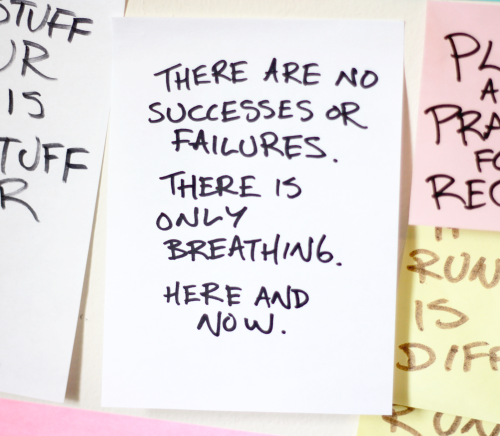 THERE ARE NO
SUCCESSES OR
FAILURES.
THERE IS
ONLY
BREATHING.
HERE AND
NOW.
STUFF
UR
IS
TUFF
R
PL
A
PRA
FO
REC
RUN
IS
DIFF
RUN